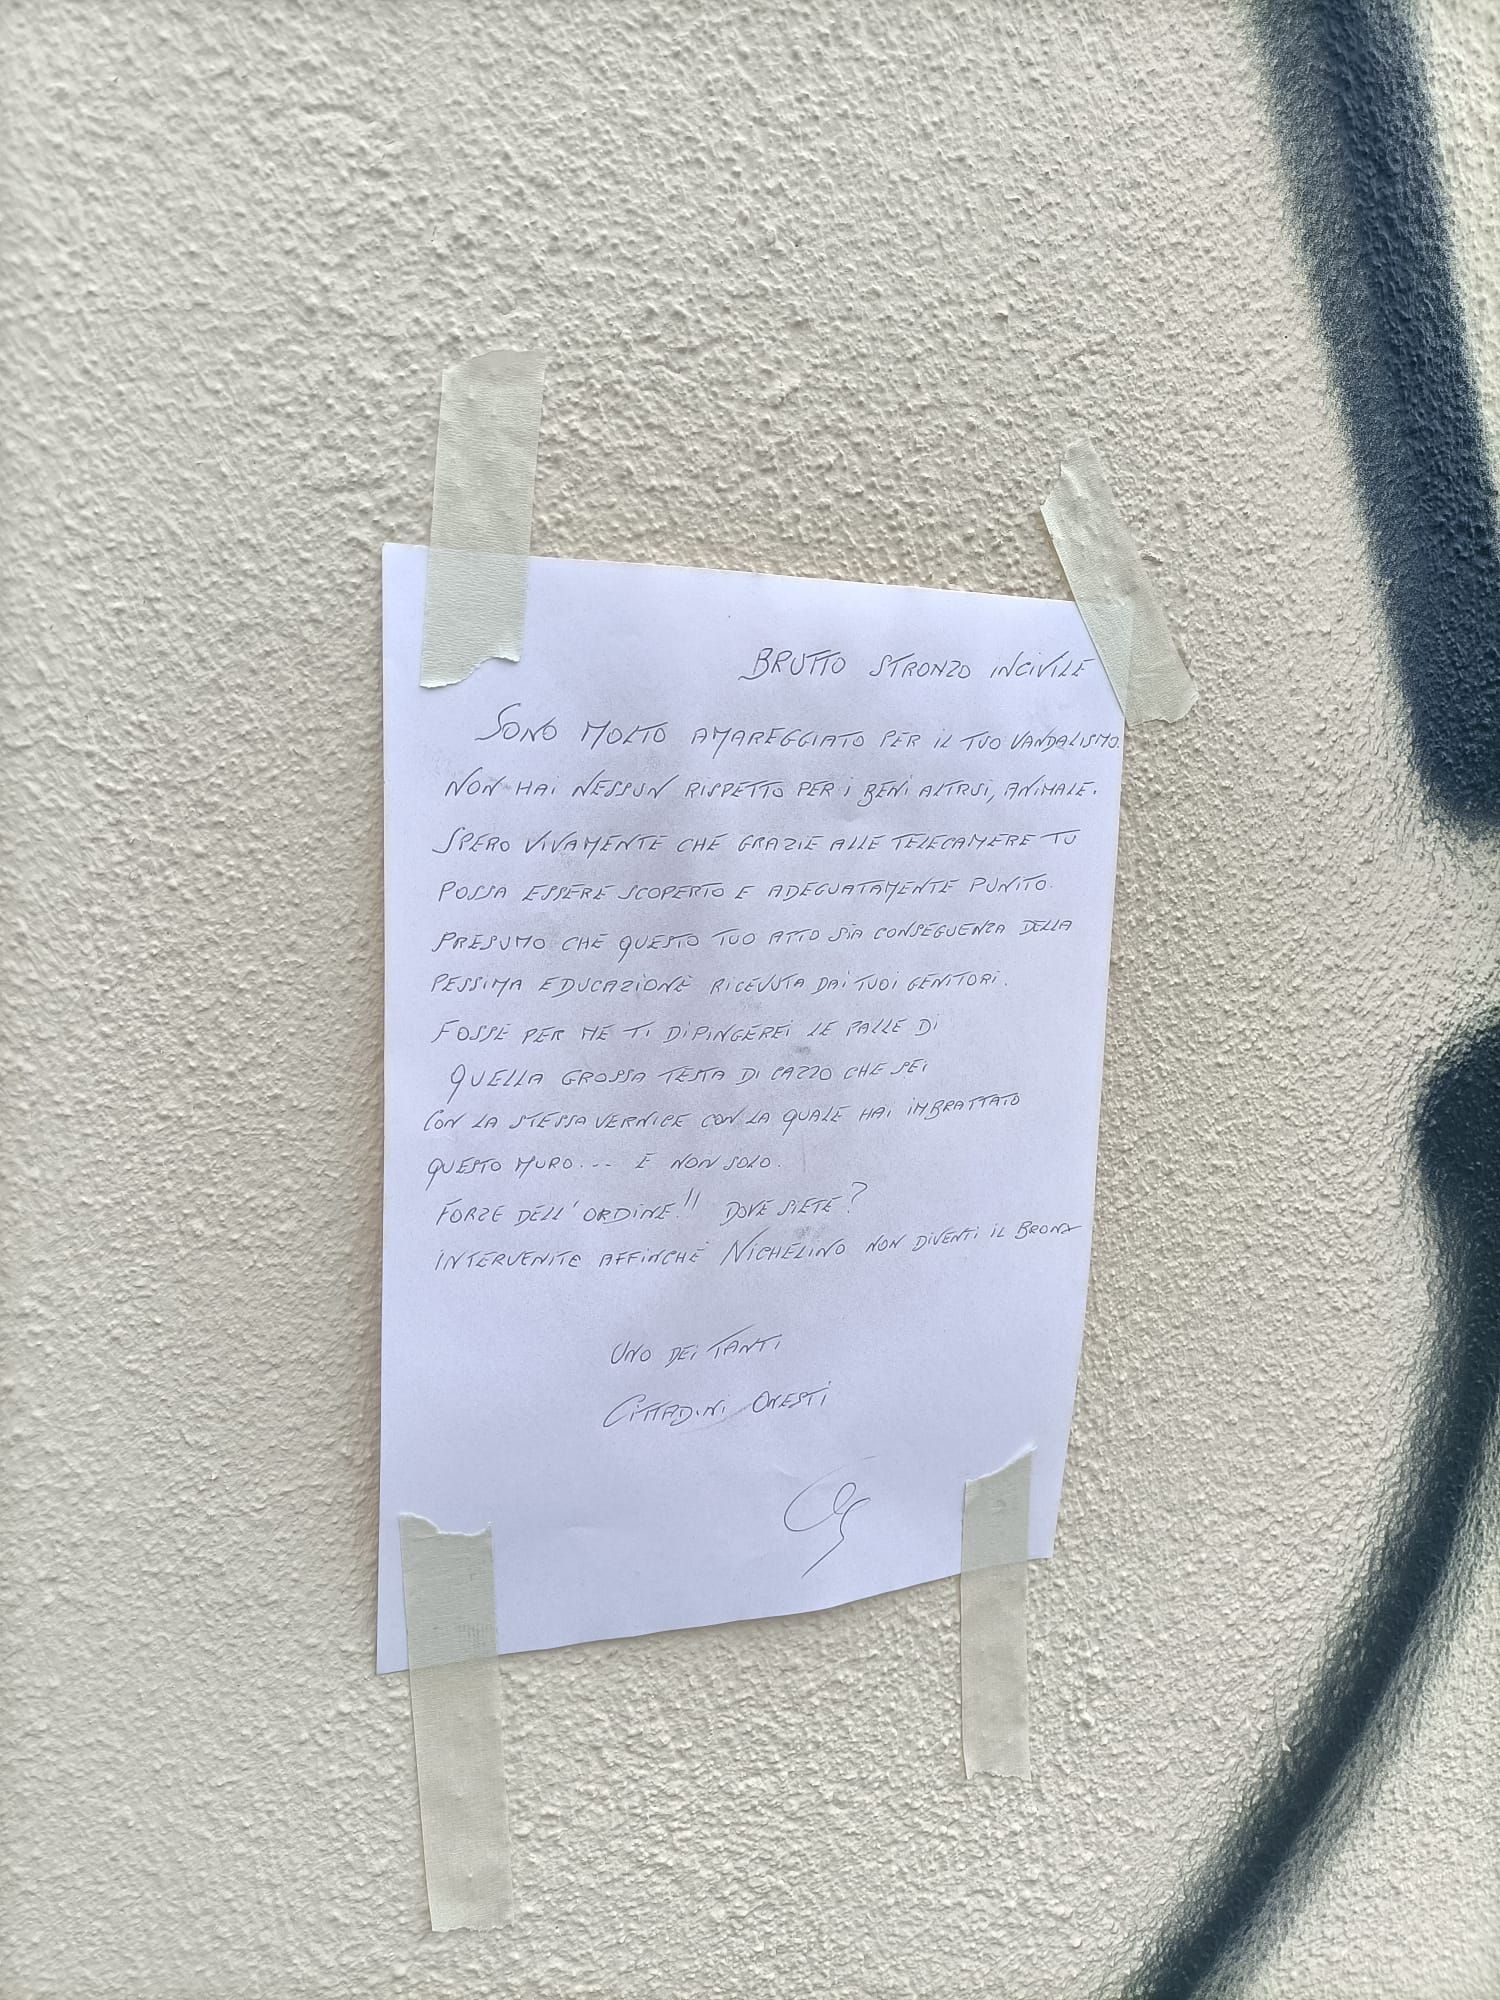 BRUTTO STRONZO INCIVILE
SONO MOLTO AMAREGGIATO PER IL TUO VANDALISMO.
NON HAI NESSUN RISPETTO PER I BENI ALTRUI, ANIMALE.
SPERO VIVAMENTE CHE GRAZIE ALLE TELECAMERE TU
POSSA ESSERE SCOPERTO E ADEGUATAMENTE PUNITO.
PRESUMO CHE QUESTO TUO ATTO SIA CONSEGUENZA DELLA
PESSIMA EDUCAZIONE RICEVUTA DAI TUOI GENITORI.
FOSSE PER ME TI DIPINGEREI LE PALLE DI
QUELLA GROSSA TESTA DI CAZZO CHE SEI
CON LA STESSA VERNICE CON LA QUALE HAI IMBRATTATO
QUESTO MURO... E NON SOLO.
FORZE DELL'ORDINE!! DOVE SIETE?
INTERVENITE AFFINCHÈ NICHELINO NON DIVENTI IL BRONX
UNO DEI TANTI
CITTADINI ONESTI